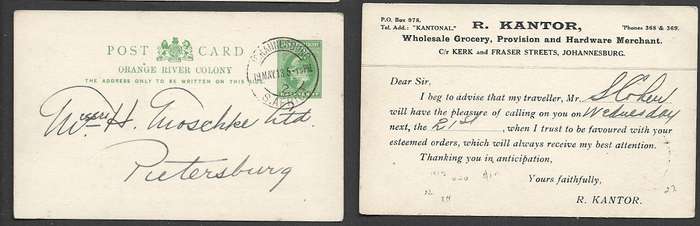 POST CARD
ORANGE RIVER COLONY
THE ADDRESS ONLY TO BE WRITTEN ON THIS
19 MAY 13
S.A.R.
Messrs H. Moschke Ltd.
Pietersburg
P.O. Box 978.
Tel. Add.: "KANTONAL"
R. KANTOR,
'Phones 368 & 369.
Wholesale Grocery, Provision and Hardware Merchant.
C/r KERK and FRASER STREETS, JOHANNESBURG.
Dear Sir.
I beg to advise that my traveller, Mr. S Cohen
will have the pleasure of calling on you on Wednesday
next, the 21st, when I trust to be favoured with your
esteemed orders, which will always receive my best attention.
Thanking you in anticipation.
Yours faithfully,
R. KANTOR.